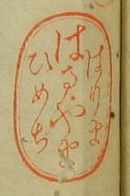 はりま
はるやま
ひめぢ